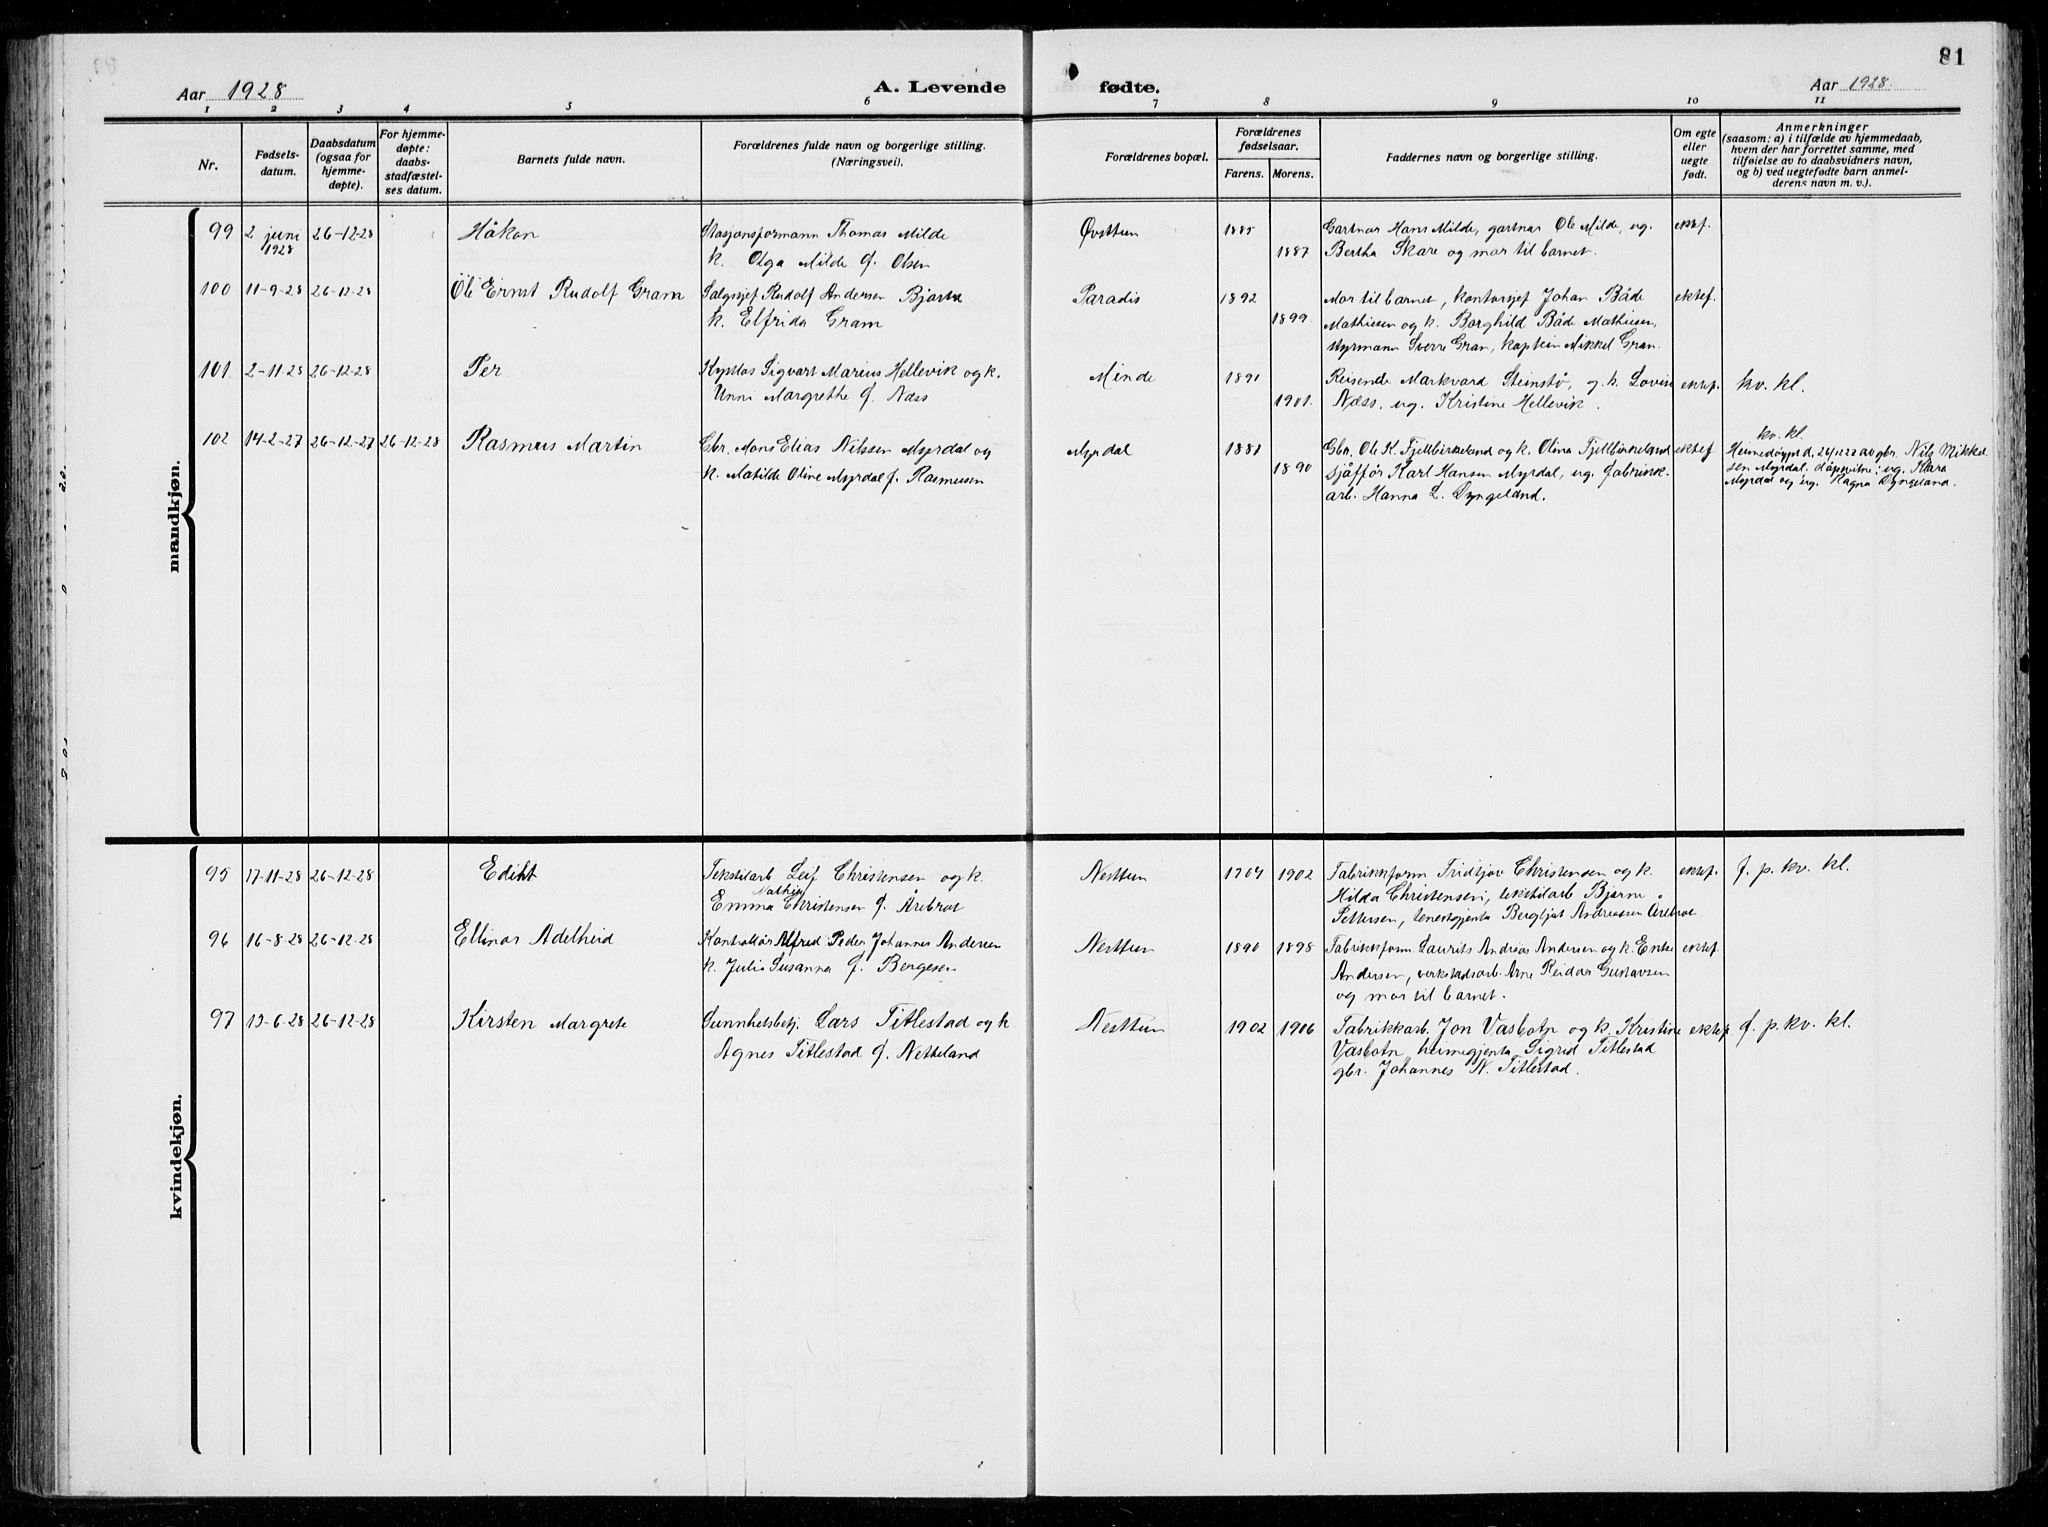 81
Aar 1928
A. Levende
fødte.
Aar 1928.
1 2 3 4 5 6 7 8 9 10 11
Nr.
Fødsels-
datum.
Daabsdatum
(ogsaa for
hjemme-
døpte).
For hjemme-
døpte:
daabs-
stadfæstel-
ses datum.
Barnets fulde navn.
Forældrenes fulde navn og borgerlige stilling.
(Næringsvei).
Forældrenes bopæl.
Forældrenes
fødselsaar.
Farens. Morens.
Faddernes navn og borgerlige stilling.
Om egte
eller
uegte
født.
Anmerkninger
(saasom: a) i tilfælde av hjemmedaab,
hvem der har forrettet samme, med
tilføielse av to daabsvidners navn,
og b) ved uegtefødte barn anmel-
derens navn m. v.).
mandkjøn.
99 2 juni 1928 26-12-28 Håkon
Stasjonsformann Thomas Milde
k. Olga Milde f. Olsen
Øvsttun 1885 1887
Gartnar Hans Milde, gartnar Ole Milde, ug.
Bertha Skare og mor til barnet.
ektef.
100 11-9-28 26-12-28 Ole Ernst Rudolf Gram
Salgssjef Rudolf Andersen Bjartn
k. Elfrida Gram
Paradis 1892 1899
Mor til barnet, kontorsjef Johan Både
Mathiesen og k. Borghild Både Mathiesen,
styrmann Sverre Gran, kaptein Mikkel Gran.
ektef.
101 2-11-28 26-12-28 Per
Sigvart Marcus Hellevik og k.
Unni Margrethe f. Næss
Minde 1891 1901.
Reisende Markvard Steinstø, og k. Lovise
Næss, ug. Kristine Hellevik.
ektef. kv. kl.
102 14-2-27 26-12-27 26-12-28 Rasmus Martin
Gbr. Mons Elias Nilssen Myrdal og
k. Matilde Oline Myrdal f. Rasmussen
Myrdal 1881 1890
Gbr. Ole K. Fjellbirkeland og k. Olina Fjellbirkeland
sjåffør Karl Hansen Myrdal, ug. fabrikk-
arb. Hanna L. Dyngeland.
ektef
kv. kl.
Heimedøypt d. av gbr. Nils Mikkel
sen Myrdal, dåpsvitne: ug. Klara
Myrdal og ug. Ragna Dyngeland.
kvindekjøn.
95 17-11-28 26-12-28 Edith
Tekstilarb Leif Christensen og k.
Emma Christensen f. Årebrot
Nesttun 1904 1902
Fabrikkform Fridtjov Christensen og k.
Hilda Christensen, tekstilarb Bjarne
Pettersen, tenestgjenta Bergljot Andreassen Årebrot.
ektef. f. p. kv. kl.
96 16-8-28 26-12-28 Ellinor Adelheid
Kontrollør Alfred Peder Johannes Andersen
k. Julie Susanna f. Bergesen
Nesttun 1890 1898
Fabrikkform Laurits Andreas Andersen og k. Enke
Andersen, verkstadsarb. Arne Reidar Gustavsen
og mor til barnet.
ektef.
97 19-6-28 26-12-28 Kirsten Margrete
Sunnhetsbetj. Lars Titlestad og k
Agnes Titlestad f. Netteland
Nesttun 1902 1906
Fabrikkarb. Jon Vasbotn og k. Kristine
Vasbotn, heimegjenta Sigrid Titlestad
gbr. Johannes N. Titlestad.
ektef. f. p. kv. kl.